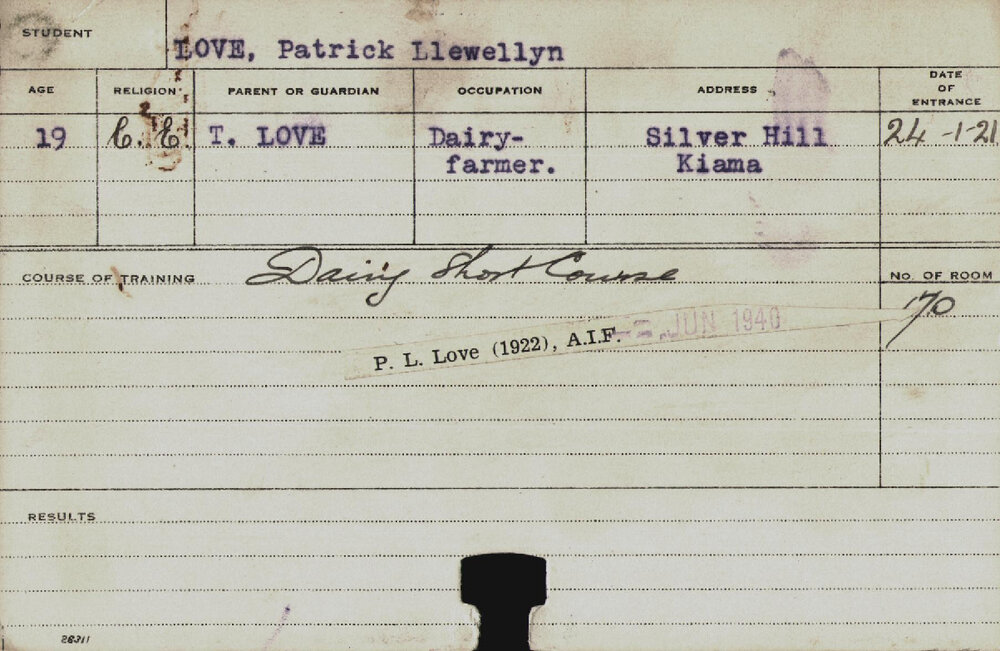 STUDENT
LOVE, Patrick Llewellyn
AGE
RELIGION
PARENT OR GUARDIAN
OCCUPATION
ADDRESS
DATE
OF
ENTRANCE
19
C. E.
T. LOVE
Dairy-
farmer.
Silver Hill
Kiama
24-1-21
COURSE OF TRAINING
Dairy Short Course
NO. OF ROOM
170
JUN 1940
P. L. Love (1922), A.I.F.
RESULTS
28311